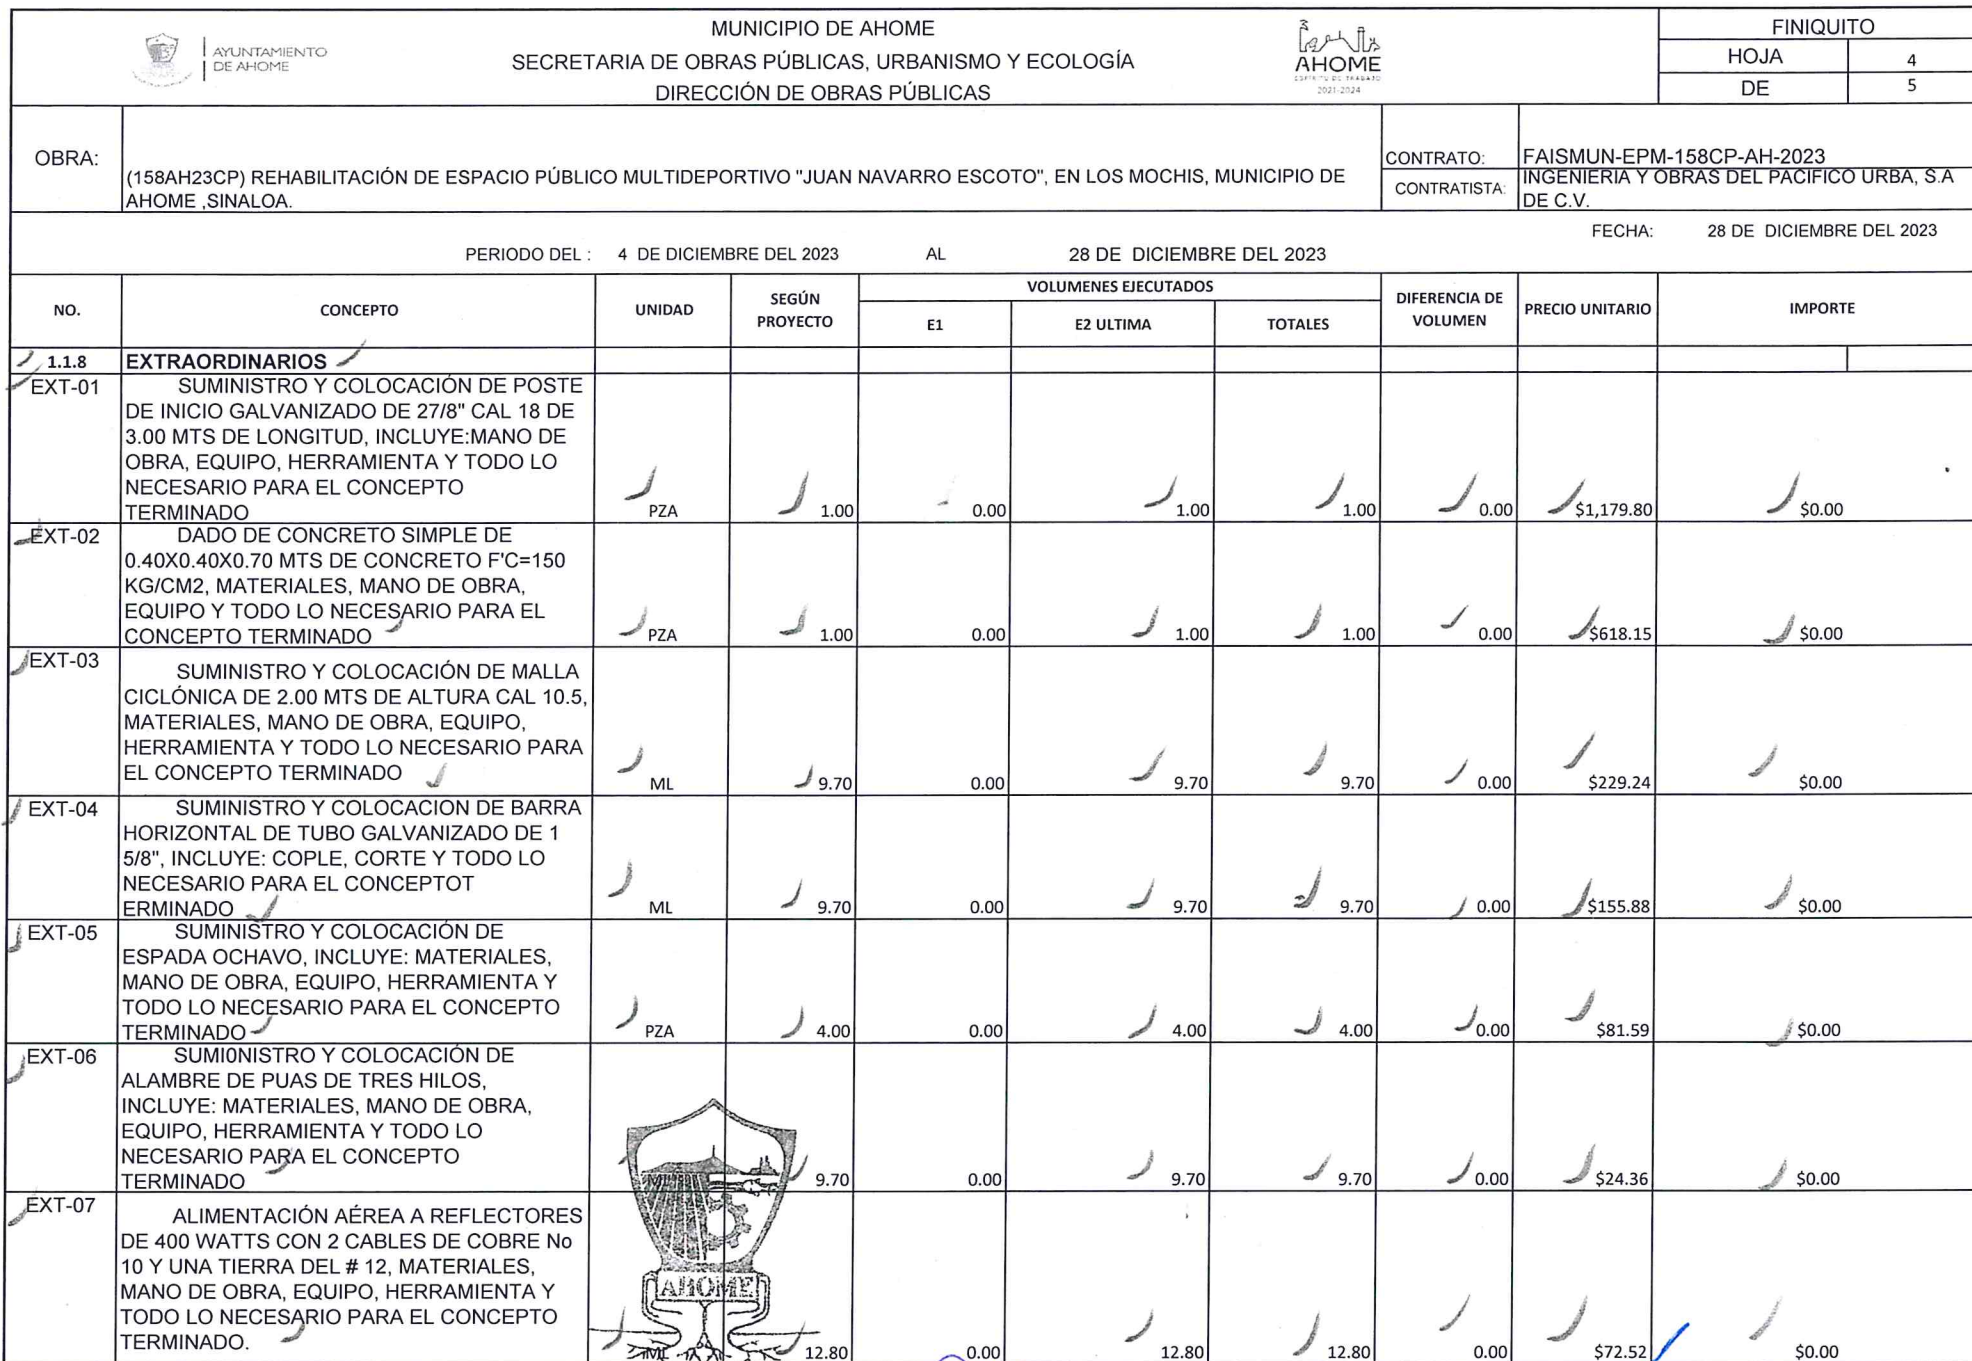 AYUNTAMIENTO
DE AHOME
MUNICIPIO DE AHOME
SECRETARIA DE OBRAS PÚBLICAS, URBANISMO Y ECOLOGÍA
DIRECCIÓN DE OBRAS PÚBLICAS
AHOME
ESPÍRITU DE TRABAJO
2021-2024
FINIQUITO
HOJA 4
DE 5
OBRA:
(158AH23CP) REHABILITACIÓN DE ESPACIO PÚBLICO MULTIDEPORTIVO "JUAN NAVARRO ESCOTO", EN LOS MOCHIS, MUNICIPIO DE
AHOME ,SINALOA.
CONTRATO: FAISMUN-EPM-158CP-AH-2023
CONTRATISTA: INGENIERIA Y OBRAS DEL PACIFICO URBA, S.A
DE C.V.
FECHA: 28 DE DICIEMBRE DEL 2023
PERIODO DEL : 4 DE DICIEMBRE DEL 2023 AL 28 DE DICIEMBRE DEL 2023
NO. CONCEPTO UNIDAD SEGÚN PROYECTO VOLUMENES EJECUTADOS DIFERENCIA DE VOLUMEN PRECIO UNITARIO IMPORTE
E1 E2 ULTIMA TOTALES
1.1.8 EXTRAORDINARIOS
EXT-01 SUMINISTRO Y COLOCACIÓN DE POSTE
DE INICIO GALVANIZADO DE 27/8" CAL 18 DE
3.00 MTS DE LONGITUD, INCLUYE:MANO DE
OBRA, EQUIPO, HERRAMIENTA Y TODO LO
NECESARIO PARA EL CONCEPTO
TERMINADO PZA 1.00 0.00 1.00 1.00 0.00 $1,179.80 $0.00
EXT-02 DADO DE CONCRETO SIMPLE DE
0.40X0.40X0.70 MTS DE CONCRETO F'C=150
KG/CM2, MATERIALES, MANO DE OBRA,
EQUIPO Y TODO LO NECESARIO PARA EL
CONCEPTO TERMINADO PZA 1.00 0.00 1.00 1.00 0.00 $618.15 $0.00
EXT-03 SUMINISTRO Y COLOCACIÓN DE MALLA
CICLÓNICA DE 2.00 MTS DE ALTURA CAL 10.5,
MATERIALES, MANO DE OBRA, EQUIPO,
HERRAMIENTA Y TODO LO NECESARIO PARA
EL CONCEPTO TERMINADO ML 9.70 0.00 9.70 9.70 0.00 $229.24 $0.00
EXT-04 SUMINISTRO Y COLOCACION DE BARRA
HORIZONTAL DE TUBO GALVANIZADO DE 1
5/8", INCLUYE: COPLE, CORTE Y TODO LO
NECESARIO PARA EL CONCEPTOT
ERMINADO ML 9.70 0.00 9.70 9.70 0.00 $155.88 $0.00
EXT-05 SUMINISTRO Y COLOCACIÓN DE
ESPADA OCHAVO, INCLUYE: MATERIALES,
MANO DE OBRA, EQUIPO, HERRAMIENTA Y
TODO LO NECESARIO PARA EL CONCEPTO
TERMINADO PZA 4.00 0.00 4.00 4.00 0.00 $81.59 $0.00
EXT-06 SUMI0NISTRO Y COLOCACIÓN DE
ALAMBRE DE PUAS DE TRES HILOS,
INCLUYE: MATERIALES, MANO DE OBRA,
EQUIPO, HERRAMIENTA Y TODO LO
NECESARIO PARA EL CONCEPTO
TERMINADO 9.70 0.00 9.70 9.70 0.00 $24.36 $0.00
EXT-07 ALIMENTACIÓN AÉREA A REFLECTORES
DE 400 WATTS CON 2 CABLES DE COBRE No
10 Y UNA TIERRA DEL # 12, MATERIALES,
MANO DE OBRA, EQUIPO, HERRAMIENTA Y
TODO LO NECESARIO PARA EL CONCEPTO
TERMINADO. ML 12.80 0.00 12.80 12.80 0.00 $72.52 $0.00
AHOME